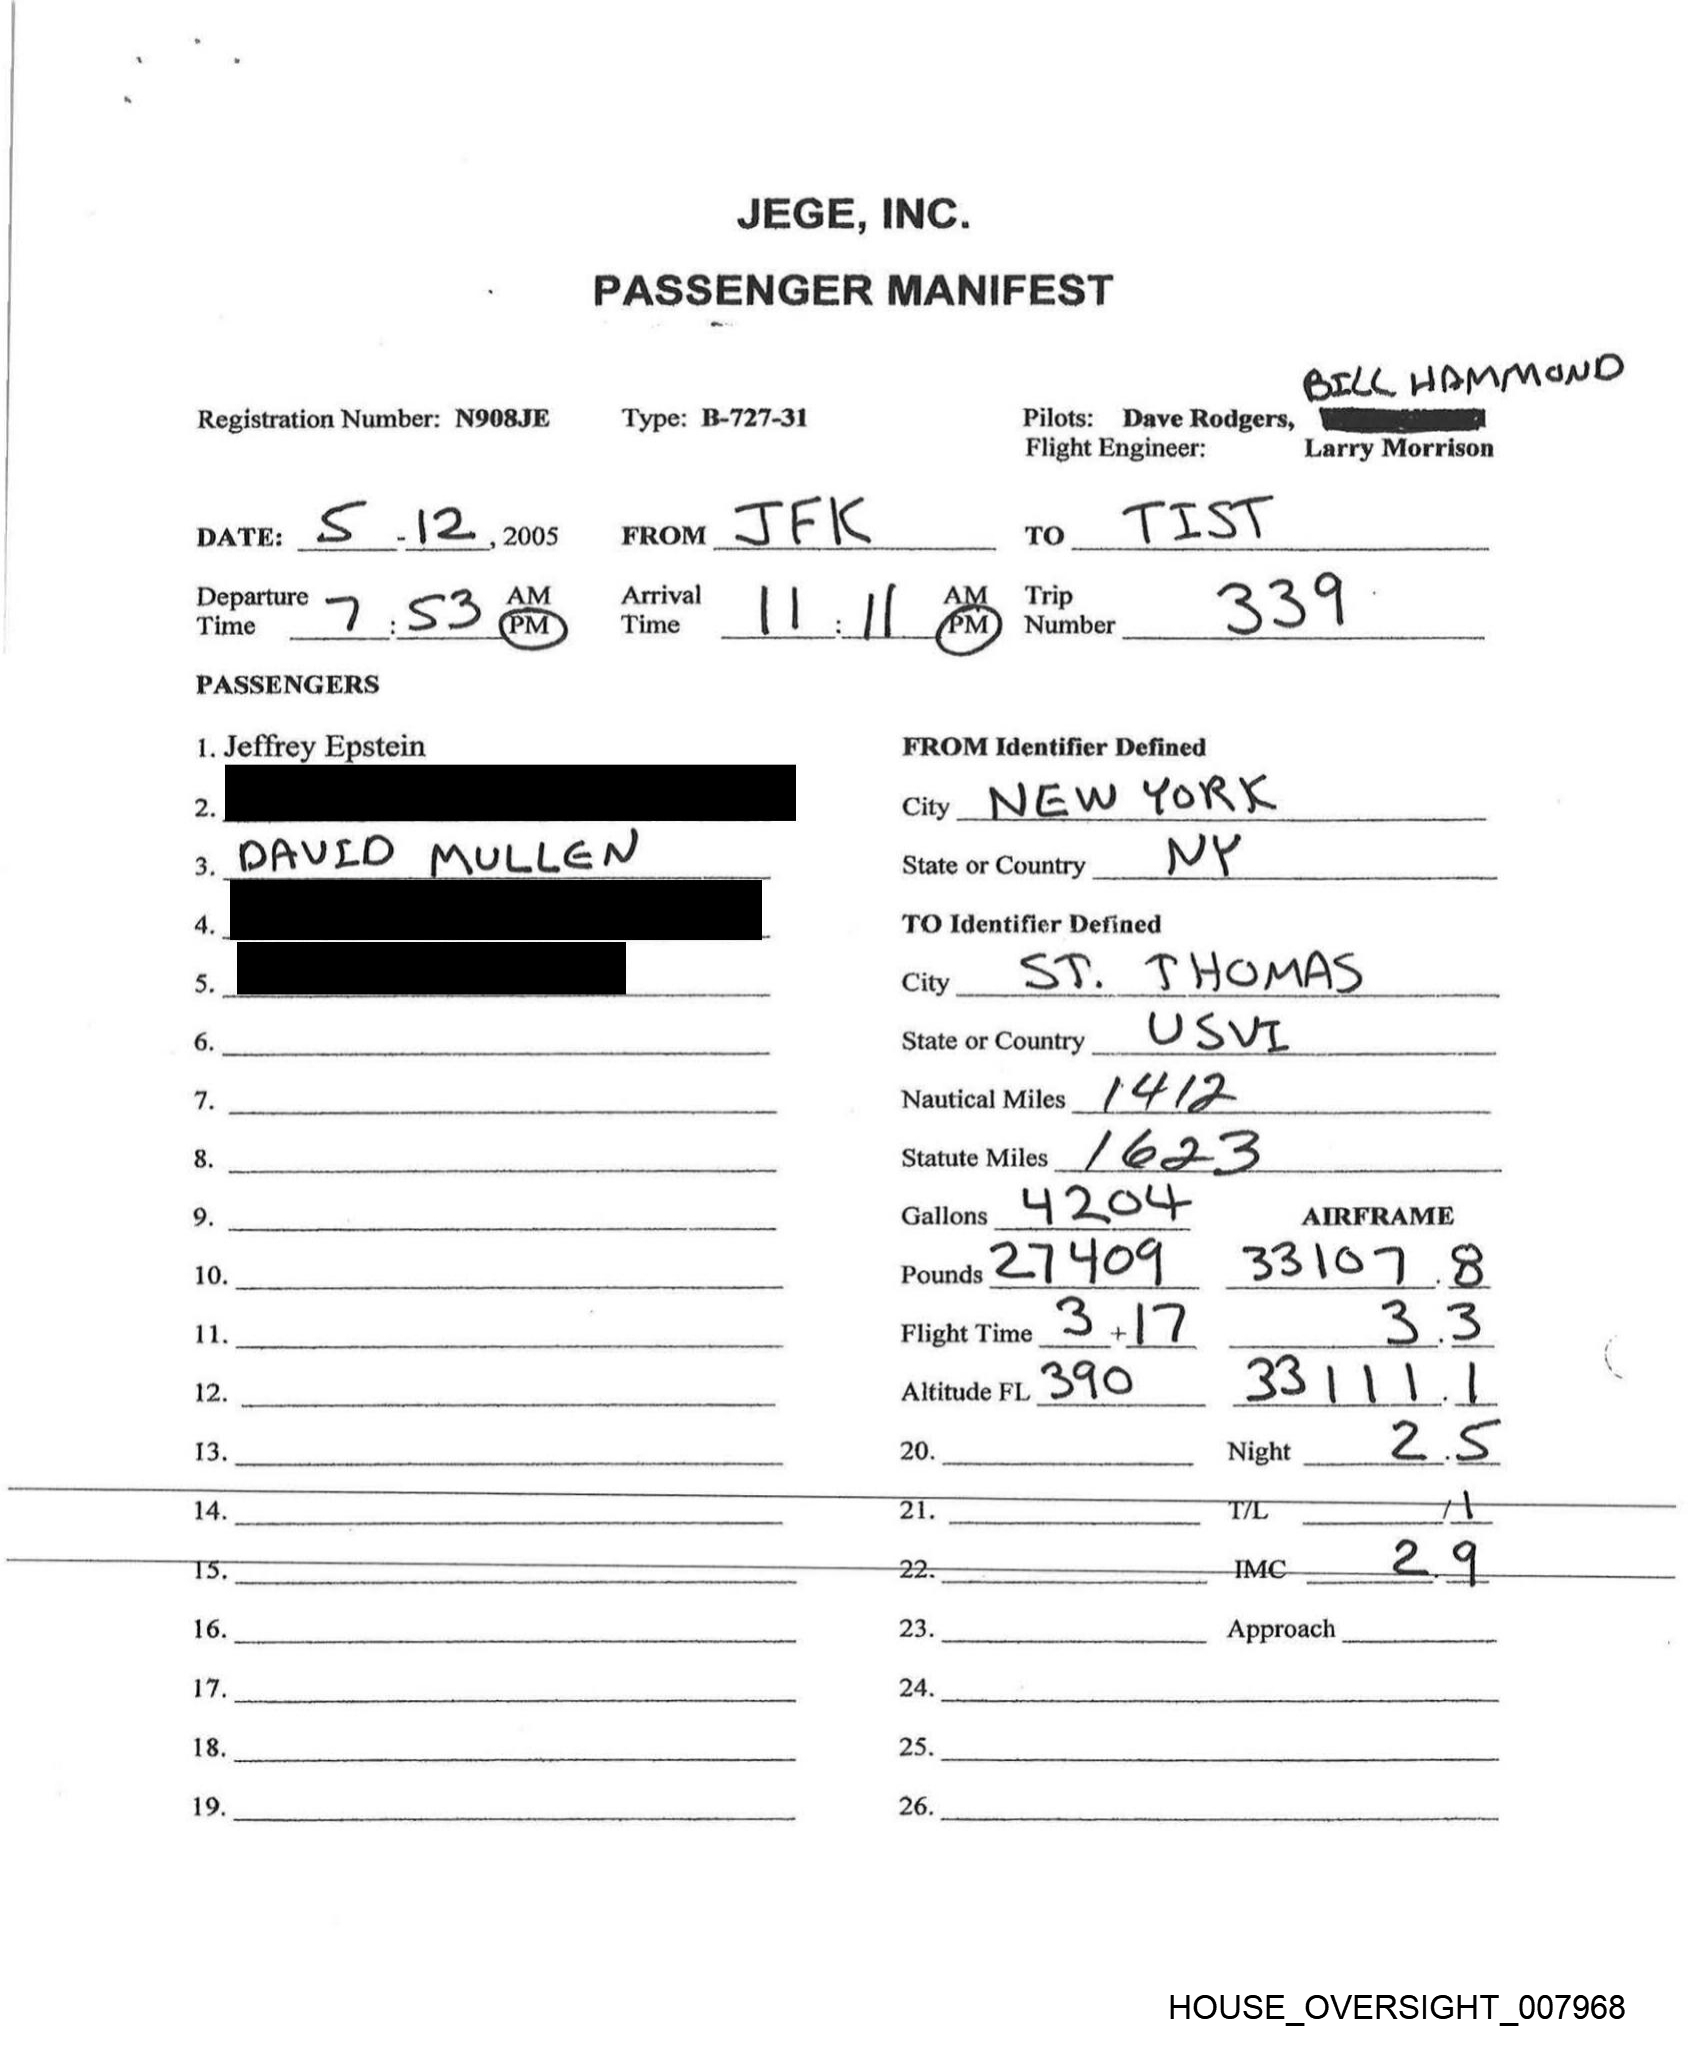 JEGE, INC.
PASSENGER MANIFEST
BILL HAMMOND
Registration Number: N908JE Type: B-727-31 Pilots: Dave Rodgers,
Flight Engineer: Larry Morrison
DATE: 5 - 12, 2005 FROM JFK TO TIST
Departure Time 7 : 53 AM PM Arrival Time 11 : 11 AM PM Trip Number 339
PASSENGERS
1. Jeffrey Epstein FROM Identifier Defined
2. City NEW YORK
3. DAVID MULLEN State or Country NY
4. TO Identifier Defined
5. City ST. THOMAS
6. State or Country USVI
7. Nautical Miles 1412
8. Statute Miles 1623
9. Gallons 4204 AIRFRAME
10. Pounds 27409 33107.8
11. Flight Time 3 + 17 3.3
12. Altitude FL 390 33111.1
13. 20. Night 2.5
14. 21. T/L /1
15. 22. IMC 2.9
16. 23. Approach
17. 24.
18. 25.
19. 26.
HOUSE_OVERSIGHT_007968